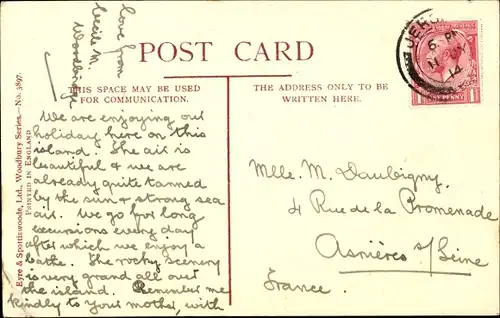 POST CARD
THIS SPACE MAY BE USED
FOR COMMUNICATION.
We are enjoying our
holiday here on this
island. The air is
beautiful & we are
already quite tanned
by the sun & strong sea
air. We go for long
excursions every day
after which we enjoy a
bathe. The rocky scenery
is very grand all out
the island. Remember me
kindly to your mother, with
love from
Cecile M.
Woodbridge
THE ADDRESS ONLY TO BE
WRITTEN HERE.
Mlle. M. Daubigny,
4 Rue de la Promenade
Asnières s/Seine
France.
6. PM
14
Eyre & Spottiswoode, Ltd., Woodbury Series.—No. 3897.
PRINTED IN ENGLAND